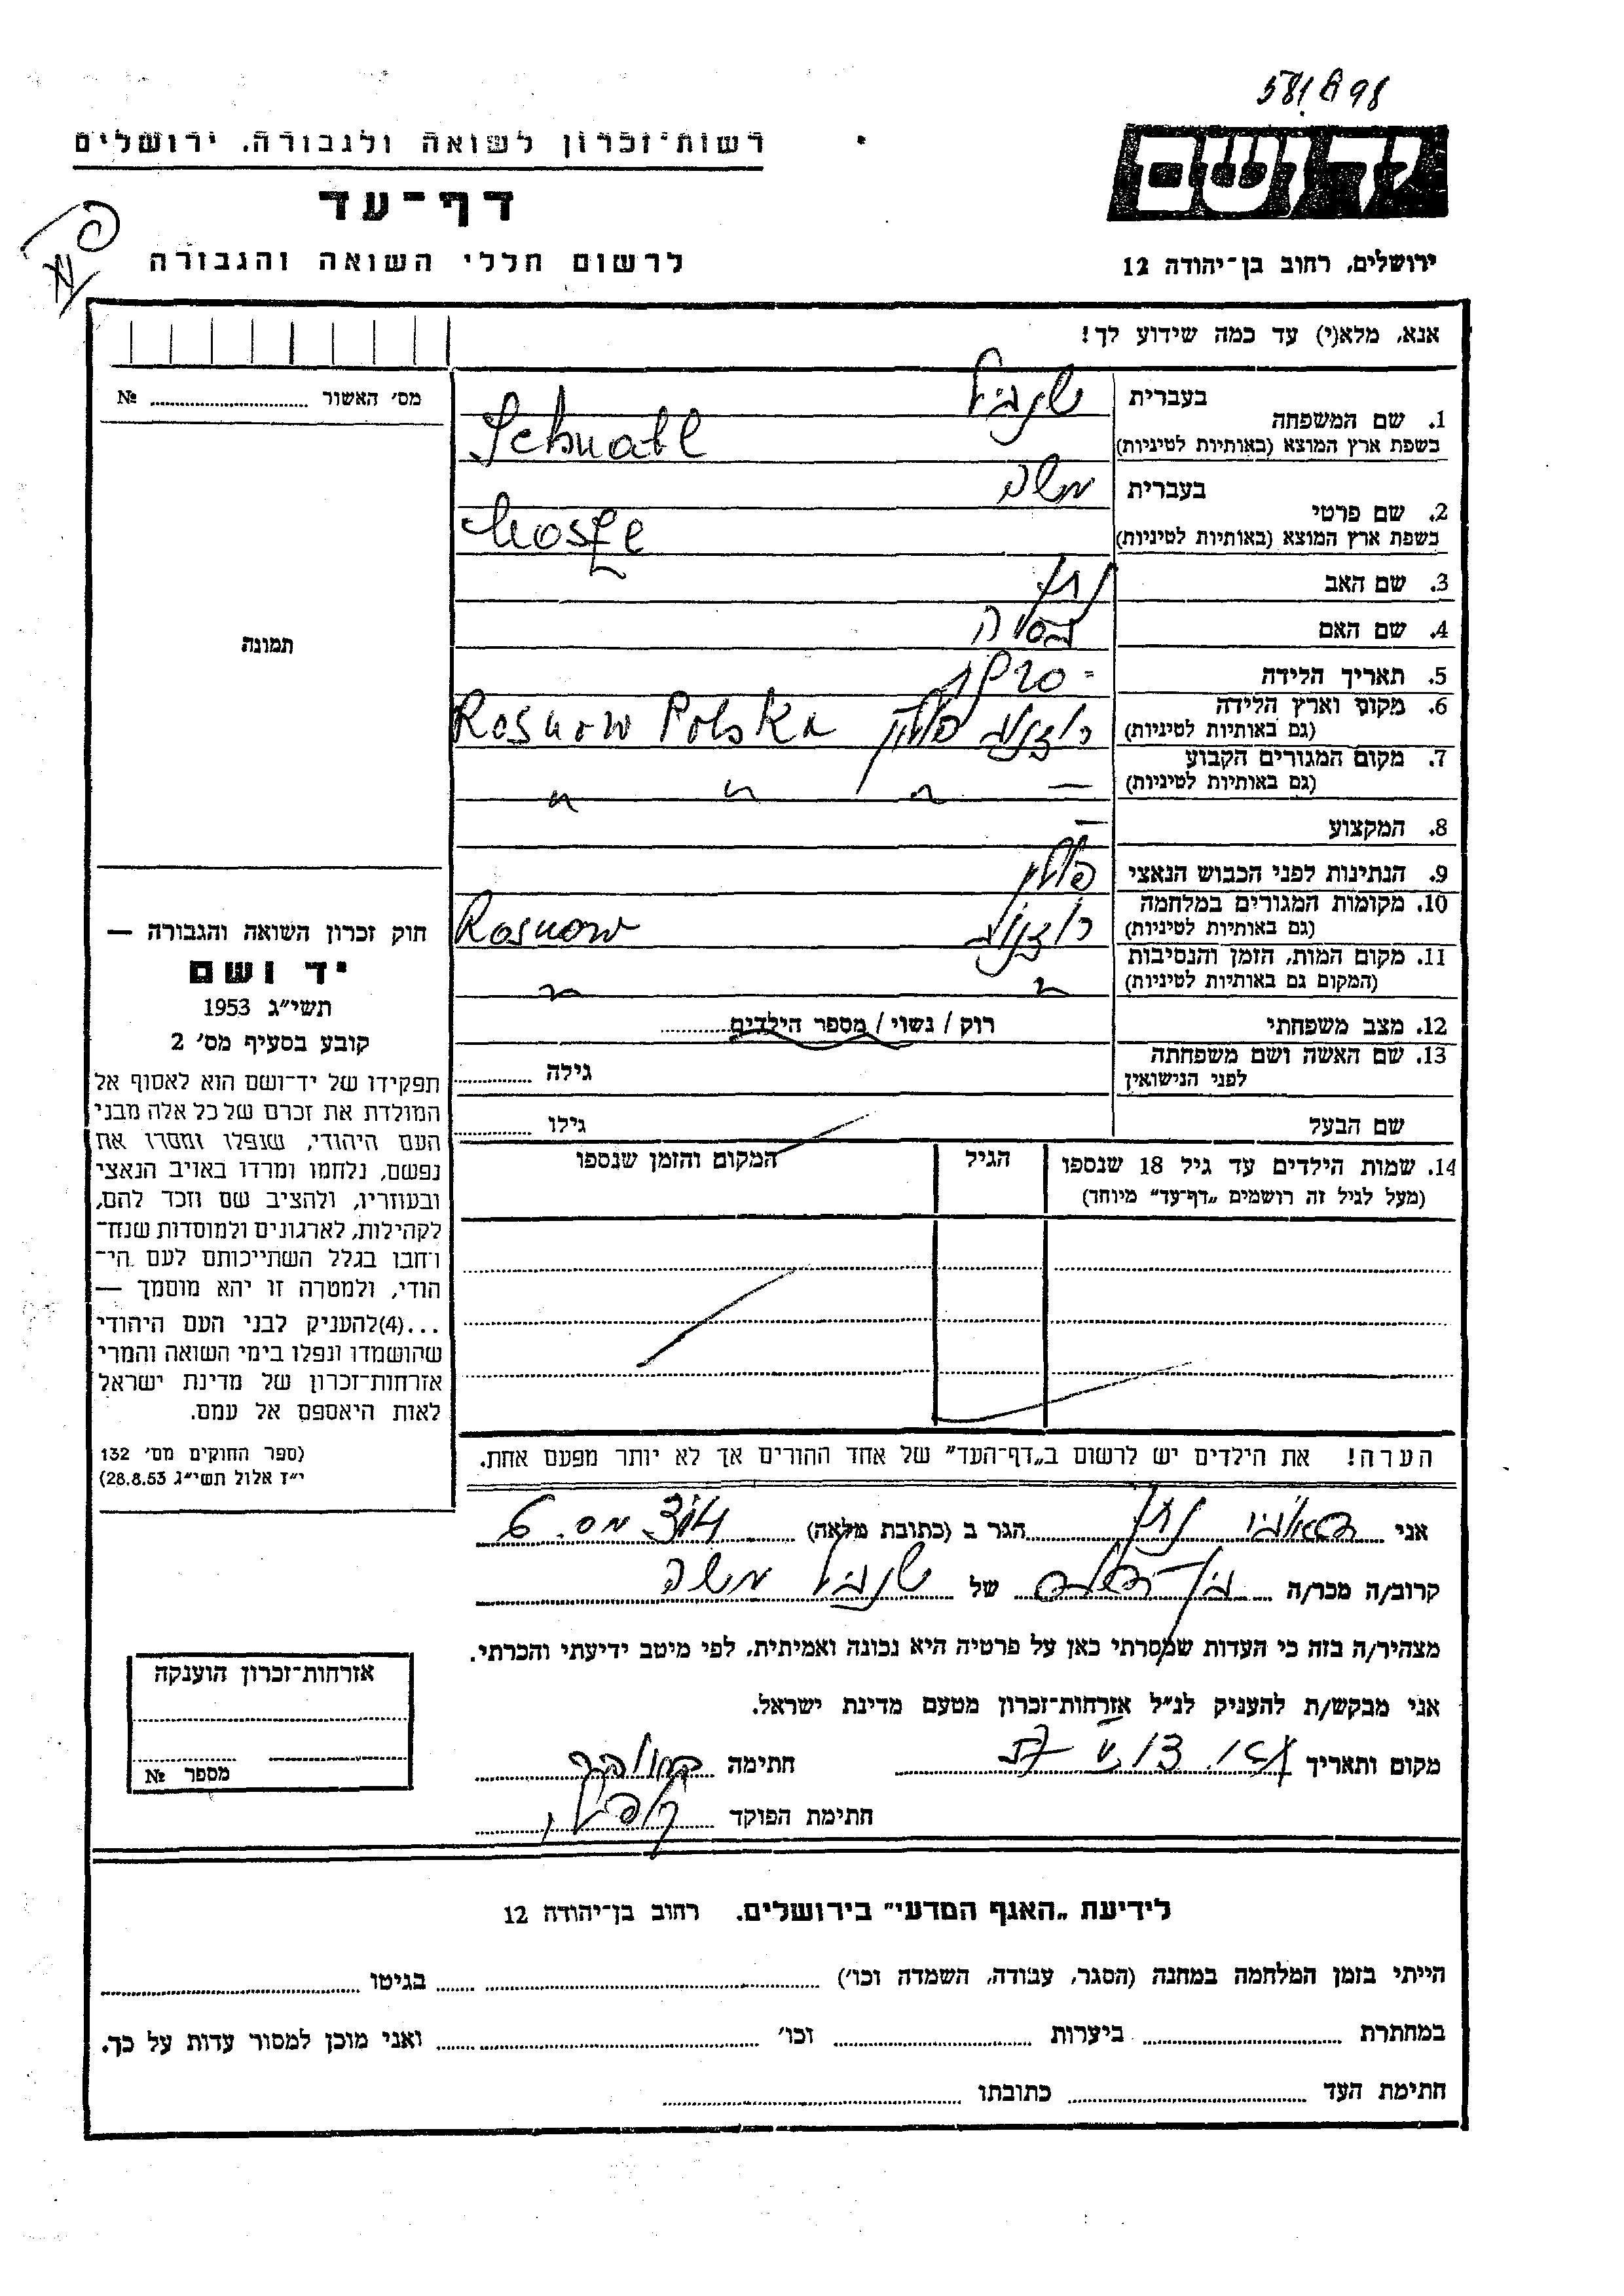 581898
רשות־זכרון לשואה ולגבורה, ירושלים
דף־עד
לרשום חללי השואה והגבורה
יד ושם
ירושלים, רחוב בן־יהודה 12
אנא, מלא(י) עד כמה שידוע לך!
מס׳ האשור № ........
תמונה
1. שם המשפחה
בעברית
בשפת ארץ המוצא (באותיות לטיניות)
2. שם פרטי
בעברית משה
בשפת ארץ המוצא (באותיות לטיניות)
3. שם האב נתן
4. שם האם
5. תאריך הלידה
6. מקום וארץ הלידה פולין Rosnow Polska
(גם באותיות לטיניות)
7. מקום המגורים הקבוע
(גם באותיות לטיניות) — " " "
8. המקצוע —
9. הנתינות לפני הכבוש הנאצי פולין
10. מקומות המגורים במלחמה Rosnow
(גם באותיות לטיניות)
11. מקום המות, הזמן והנסיבות
(המקום גם באותיות לטיניות) " "
12. מצב משפחתי רוק / נשוי / מספר הילדים ........
13. שם האשה ושם משפחתה
לפני הנישואין גילה ........
שם הבעל גילו ........
14. שמות הילדים עד גיל 18 שנספו הגיל המקום והזמן שנספו
(מעל לגיל זה רושמים „דף־עד״ מיוחד)
חוק זכרון השואה והגבורה —
יד ושם
תשי״ג 1953
קובע בסעיף מס׳ 2
תפקידו של יד־ושם הוא לאסוף אל
המולדת את זכרם של כל אלה מבני
העם היהודי, שנפלו ומסרו את
נפשם, נלחמו ומרדו באויב הנאצי
ובעוזריו, ולהציב שם וזכר להם,
לקהילות, לארגונים ולמוסדות שנח־
רחבו בגלל השתייכותם לעם הי־
הודי, ולמטרה זו יהא מוסמך —
...(4)להעניק לבני העם היהודי
שהושמדו ונפלו בימי השואה והמרי
אזרחות־זכרון של מדינת ישראל
לאות היאספם אל עמם.
(ספר החוקים מס׳ 132
י״ז אלול תשי״ג 28.8.53)
הערה! את הילדים יש לרשום ב„דף־העד״ של אחד ההורים אך לא יותר מפעם אחת.
אני נתן הגר ב (כתובת מלאה) מס. 6
קרוב/ה מכר/ה של משה
מצהיר/ה בזה כי העדות שמסרתי כאן על פרטיה היא נכונה ואמיתית, לפי מיטב ידיעתי והכרתי.
אני מבקש/ת להעניק לנ״ל אזרחות־זכרון מטעם מדינת ישראל.
מקום ותאריך חתימה
חתימת הפוקד
אזרחות־זכרון הוענקה
מספר №
לידיעת „האגף המדעי״ בירושלים, רחוב בן־יהודה 12
הייתי בזמן המלחמה במחנה (הסגר, עבודה, השמדה וכו׳) ........ בגיטו ........
במחתרת ........ ביערות ........ וכו׳ ........ ואני מוכן למסור עדות על כך.
חתימת העד ........ כתובתו ........